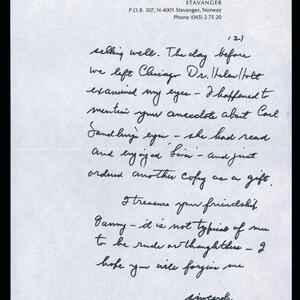 STAVANGER
P.O.B. 307, N-4001 Stavanger, Norway
Phone (045) 2 75 20
(2)
selling well. The day before
we left Chicago Dr. Helen Holt
examined my eyes – I happened to
mention your anecdote about Carl
Sandburg's eyes – she had read
and enjoyed "Lives" – and just
ordered another copy as a gift.
I treasure your friendship
Fanny – it is not typical of me
to be rude or thoughtless – I
hope you will forgive me
sincerely